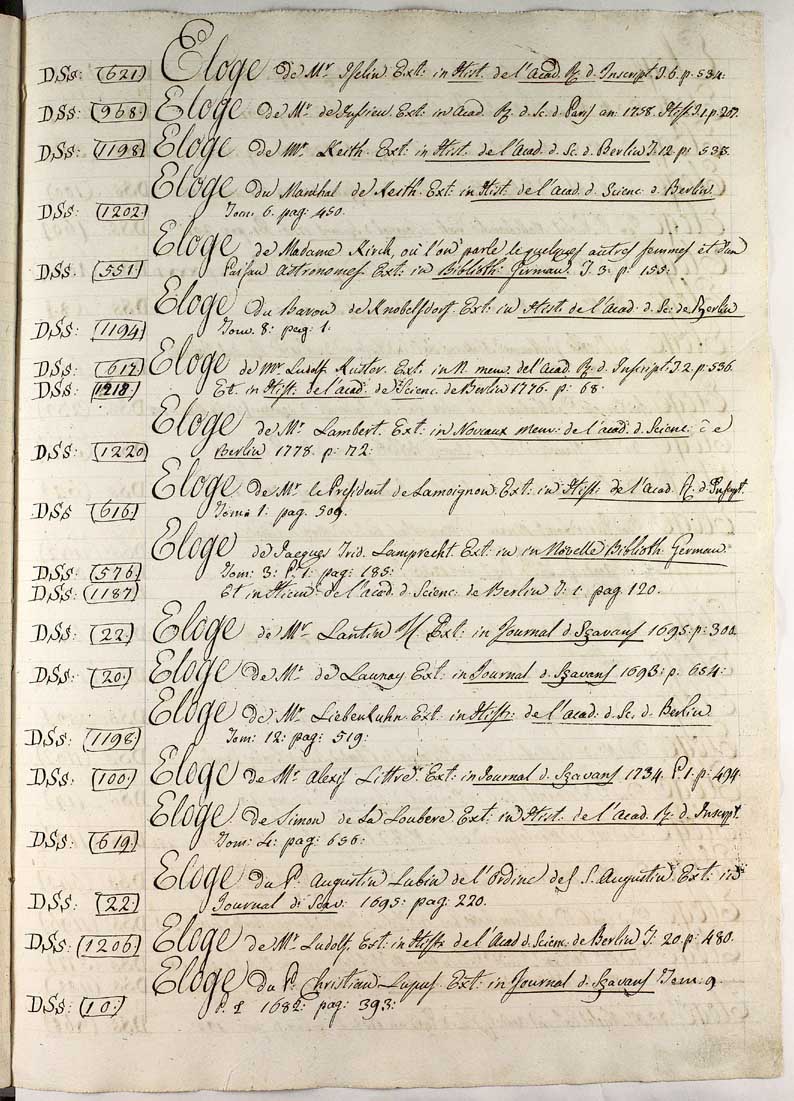 DSs: (621) Eloge de Mr Iselin Ext: in Hist. de l'Acad. R. d. Inscript. T. 6. p: 534:
DSs: (968) Eloge de Mr. de Jussieu. Ext: in Acad. R. d. Sc. d. Paris an: 1758. Hist. T. 1. p. 207.
DSs: (1198) Eloge de Mr. Keith. Ext: in Hist. de l'Acad. d. Sc. d. Berlin T. 12. p: 533.
Eloge du Maréchal de Keith. Ext: in Hist. de l'Acad. d. Scienc. d. Berlin
DSs: (1202) Tom. 6. pag: 450.
Eloge de Madame Kirch, ou l'on parle de quelques autres femmes et d'un
DSs: (551) Paisan astronomes. Ext: in Biblioth: German. T. 3. p: 155:
Eloge du Baron de Knobelsdorf. Ext: in Hist. de l'Acad. d. Sc: de Berlin
DSs: (1194) Tom. 8: pag: 1.
DSs: (612) Eloge de Mr Ludolf Kuster. Ext: in N. mem. de l'Acad. R. d. Inscript. T. 2. p: 536.
DSs: (1218) Et. in Hist: de l'acad. de Scienc. de Berlin 1776. p: 68:
Eloge de Mr. Lambert. Ext: in Noveaux mem: de l'acad. d. Scienc: de
DSs: (1220) Berlin 1778. p: 72:
Eloge de Mr le President de Lamoignon. Ext: in Hist: de l'Acad. R. d. Inscript.
DSs (616) Tom: 1: pag: 509.
Eloge de Jacques Frid. Lamprecht. Ext: in in Novelle Biblioth: German.
DSs: (576) Tom: 3: P. 1: pag: 185:
DSs: (1187) Et in Mem: de l'acad. d. Scienc. de Berlin T: 1. pag. 120.
DSs: (22) Eloge de Mr. Lantin Ext: in Journal d. Sçavans 1695. p: 300.
DSs: (20) Eloge de Mr. de Launay Ext: in Journal d. Sçavans 1693: p: 654:
Eloge de Mr. Lieberkuhn. Ext: in Hist: de l'acad: d. Sc. d. Berlin
DSs: (1198) Tom: 12: pag: 519:
DSs: (100) Eloge de Mr. Alexis Littre. Ext: in Journal d. Sçavans 1734. P. 1. p: 494.
Eloge de Simon de La Loubere. Ext: in Hist. de l'Acad. R. d. Inscript.
DSs: (619) Tom: 4: pag: 656:
Eloge du P. Augustin Lubin de l'Ordine des S. Augustin Ext: in
DSs: (22) Journal d: Scav: 1695: pag: 220.
DSs: (1206) Eloge de Mr. Ludolf. Ext: in Hist: de l'Acad. d. Scienc: de Berlin T. 20. p: 480.
Eloge du P. Christian Lupus. Ext: in Journal d. Sçavans Tom: 9
DSs: (10) P. 1682: pag: 393: